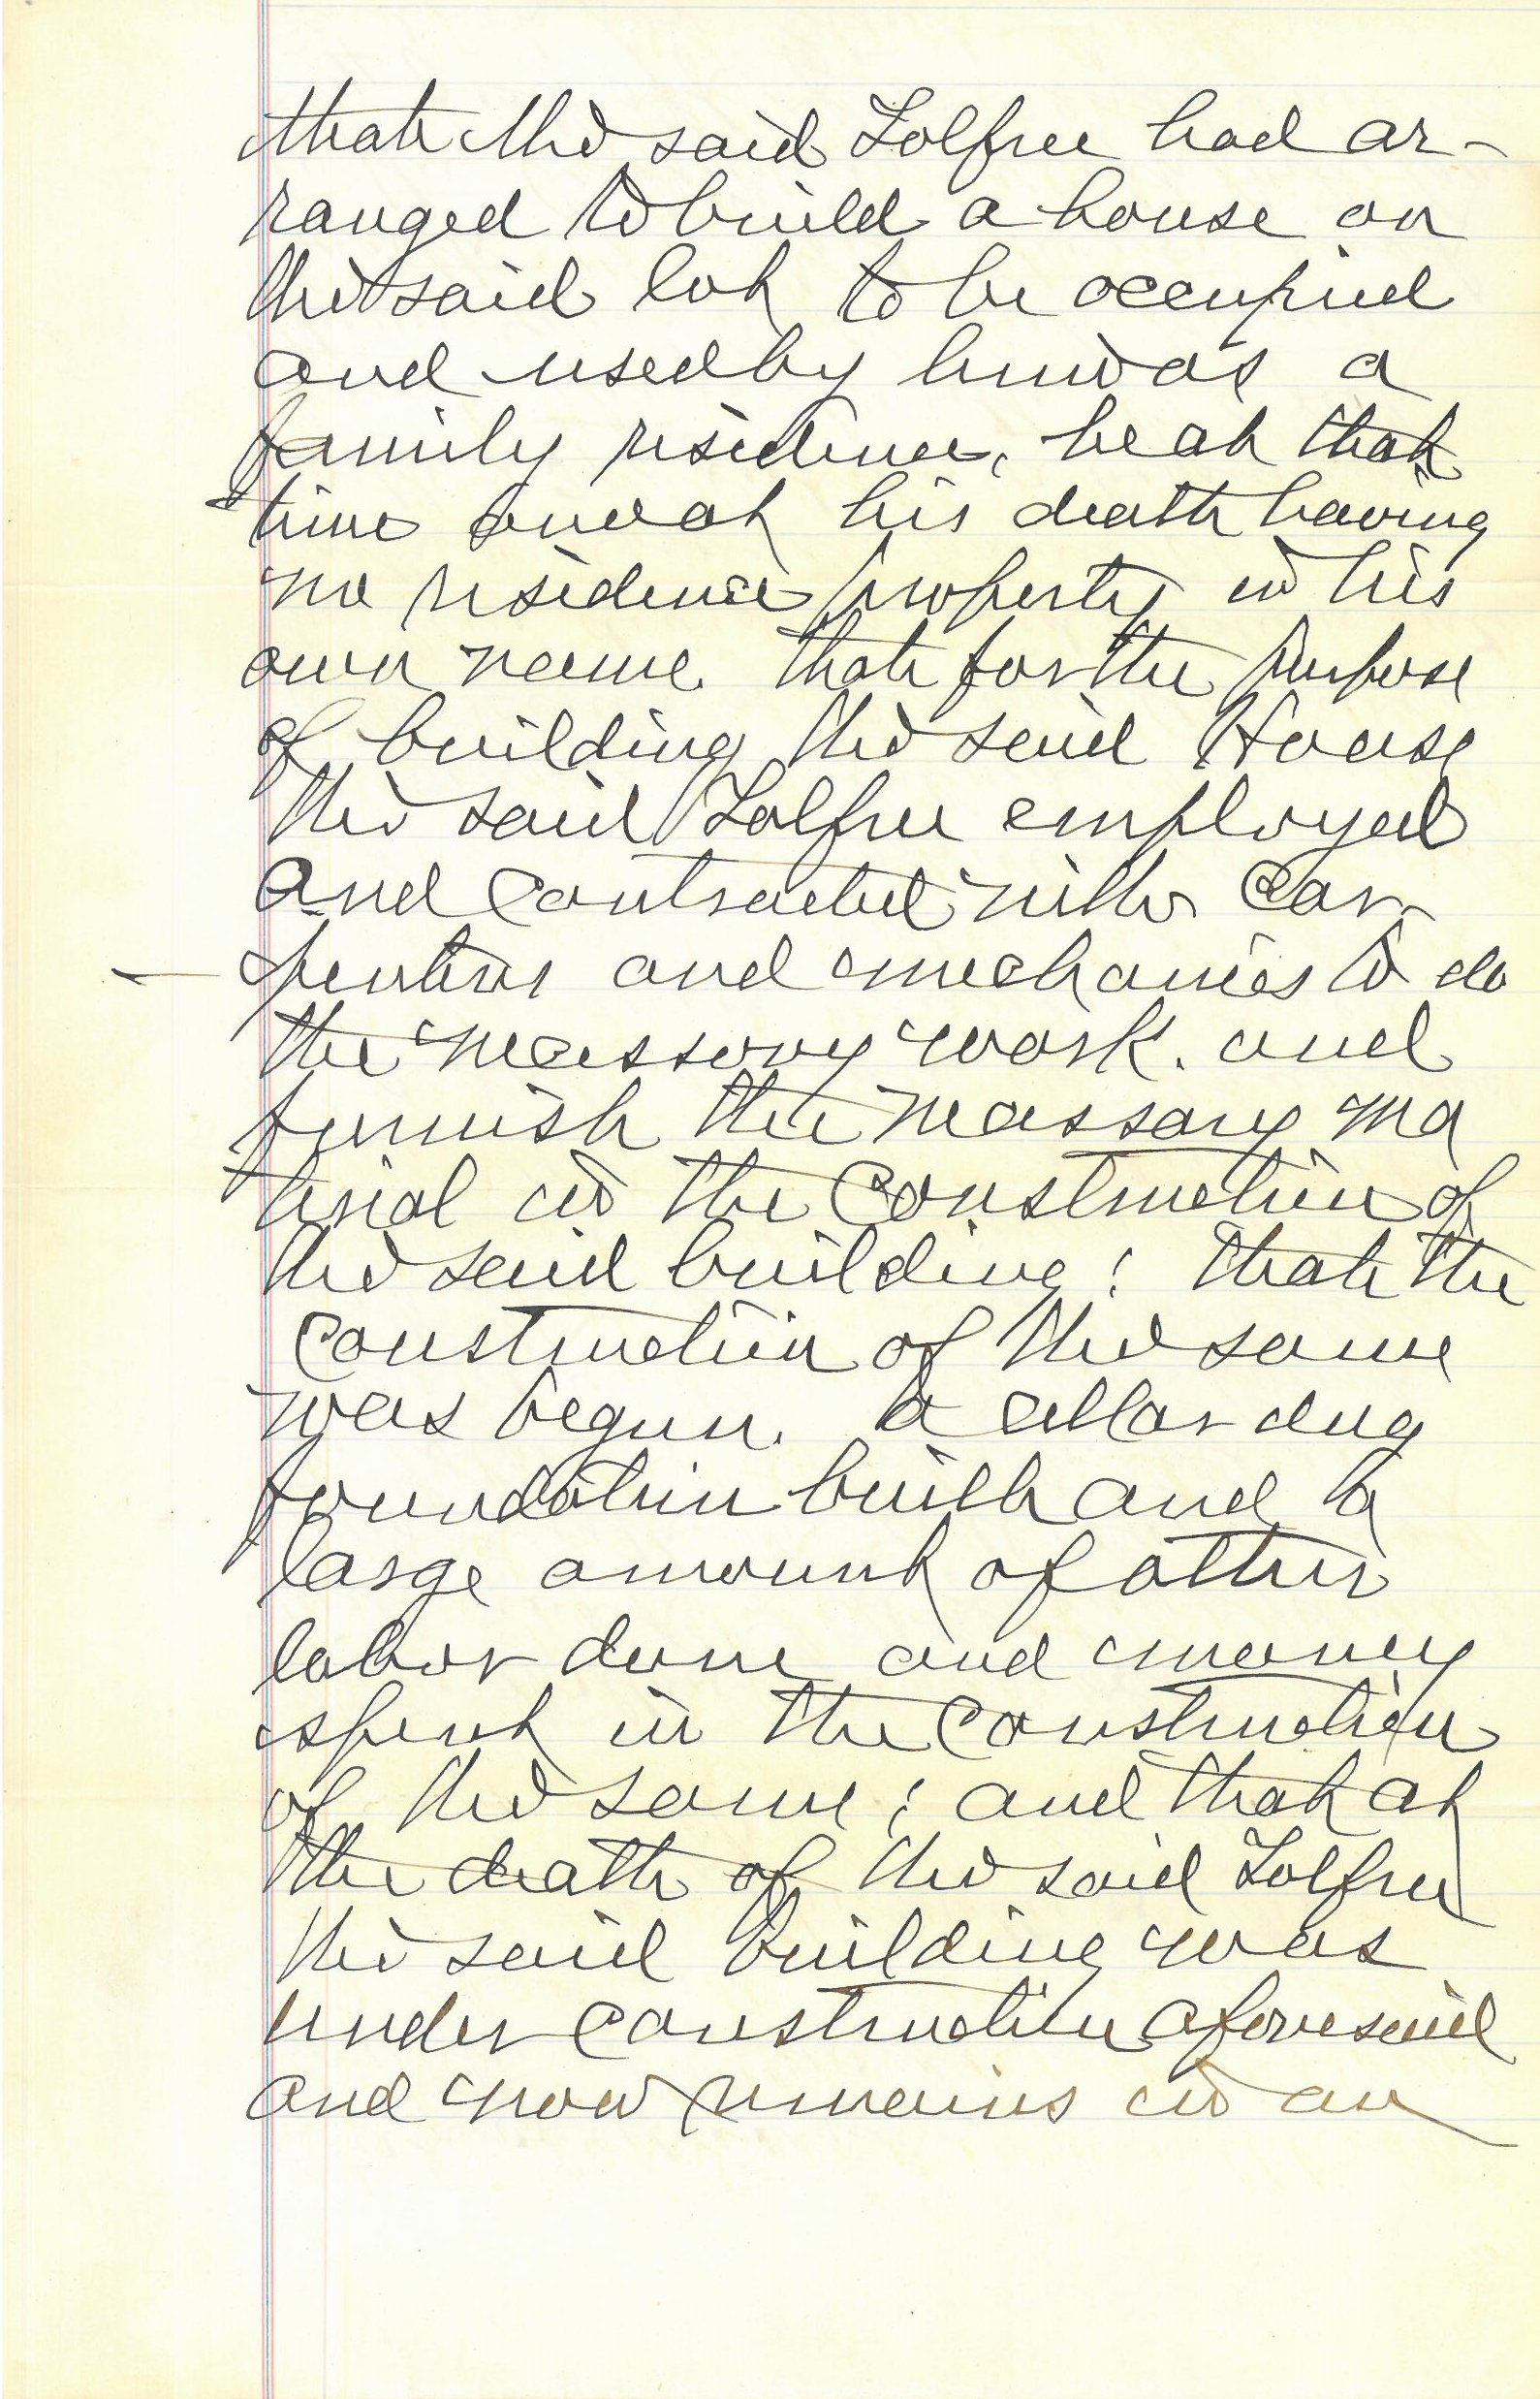 that the said Tolfree had ar-
ranged to build a house on
the said lot to be occupied
and used by him as a
family residence, he at that
time and at his death having
no residence property in his
own name. that for the purpose
of building the said House
the said Tolfree employed
and contracted with Car-
penters and mechanics to do
the necessary work. and
furnish the necessary ma
terial in the Construction of
the said building; that the
Construction of the same
was begun. a cellar dug
foundation built and a
large amount of other
labor done and money
spent in the Construction
of the same; and that at
the death of the said Tolfree
the said building was
under Construction aforesaid
and now remains in an